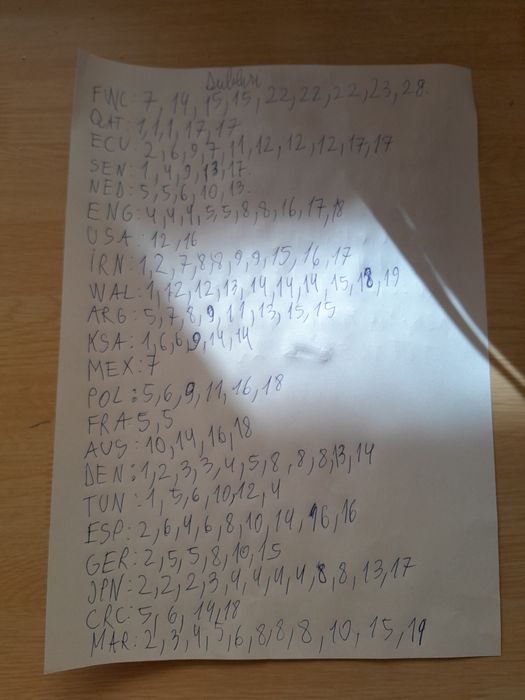 Dubluri
FWC: 7, 14, 15, 15, 22, 22, 22, 23, 28.
QAT: 1, 1, 1, 17, 17
ECU: 2, 6, 9, 7, 11, 12, 12, 12, 17, 17
SEN: 1, 4, 9, 13, 17.
NED: 5, 5, 6, 10, 13.
ENG: 4, 4, 4, 5, 5, 8, 8, 16, 17, 18
USA: 12, 16
IRN: 1, 2, 7, 8, 8, 9, 9, 15, 16, 17
WAL: 1, 12, 12, 13, 14, 14, 14, 15, 18, 19
ARG: 5, 7, 8, 9, 11, 13, 15, 15
KSA: 1, 6, 6, 9, 14, 14
MEX: 7
POL: 5, 6, 9, 11, 16, 18
FRA 5, 5
AUS: 10, 14, 16, 18
DEN: 1, 2, 3, 3, 4, 5, 8, 8, 8, 13, 14
TUN: 1, 5, 6, 10, 12, 4
ESP: 2, 6, 4, 6, 8, 10, 14, 16, 16
GER: 2, 5, 5, 8, 10, 15
JPN: 2, 2, 2, 3, 4, 4, 4, 4, 8, 8, 13, 17
CRC: 5, 6, 14, 18
MAR: 2, 3, 4, 5, 6, 8, 8, 8, 10, 15, 19